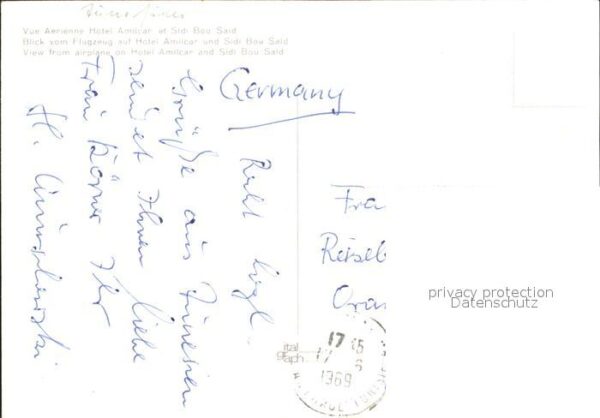 Vue Aerienne Hotel Amilcar et Sidi Bou Said
Blick vom Flugzeug auf Hotel Amilcar und Sidi Bou Said
View from airplane on Hotel Amilcar and Sidi Bou Said
Germany
Recht herzl.
Grüße aus Tunesien
sendet Ihnen liebe
Frau Körner Ihr
H.
Fra
Reiseb
Oran
privacy protection
Datenschutz
17
1969